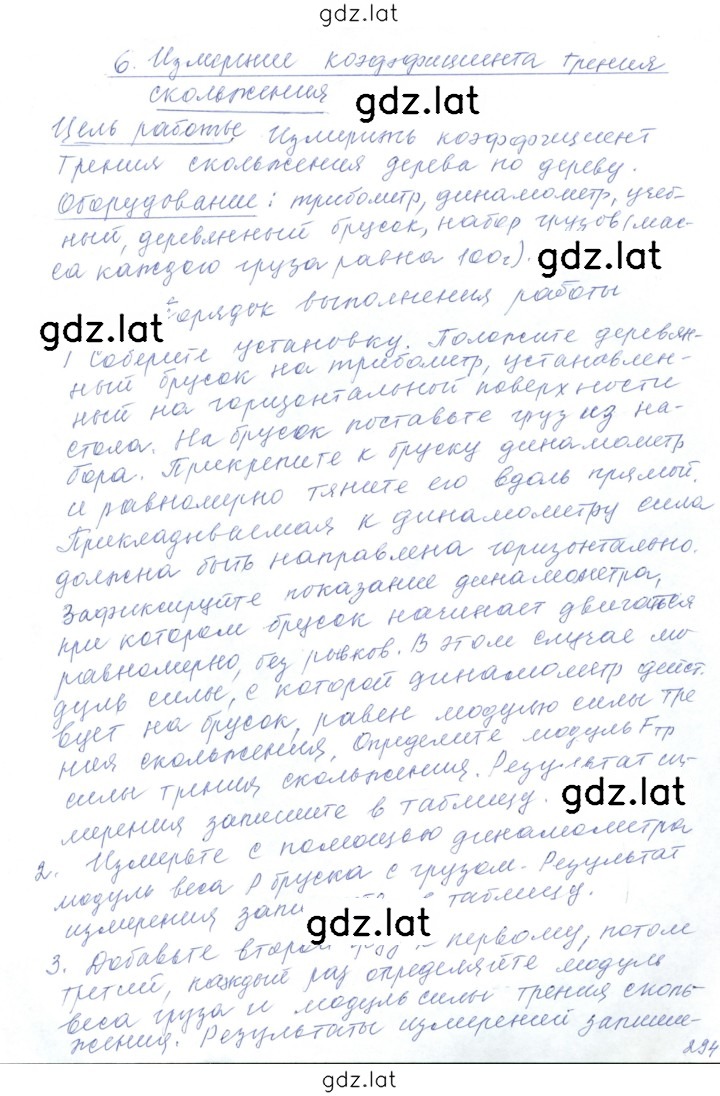 gdz.lat
6. Измерение коэффициента трения
скольжения
gdz.lat
Цель работы: Измерить коэффициент
трения скольжения дерева по дереву.
Оборудование: трибометр, динамометр, учеб-
ный, деревянный брусок, набор грузов (мас-
са каждого груза равна 100г).
gdz.lat
Порядок выполнения работы
gdz.lat
1 Соберите установку. Положите деревян-
ный брусок на трибометр, установлен-
ный на горизонтальной поверхности
стола. На брусок поставьте груз из на-
бора. Прикрепите к бруску динамометр
и равномерно тяните его вдоль прямой.
Прикладываемая к динамометру сила
должна быть направлена горизонтально.
Зафиксируйте показание динамометра,
при котором брусок начинает двигаться
равномерно, без рывков. В этом случае мо-
дуль силы, с которой динамометр дейст.
вует на брусок, равен модулю силы тре
ния скольжения. Определите модуль Fтр
силы трения скольжения. Результат из-
мерения запишите в таблицу.
gdz.lat
2. Измерьте с помощью динамометра
модуль веса P бруска с грузом. Результат
измерения запи таблицу.
gdz.lat
3. Добавьте второй груз к первому, потом
третий, каждый раз определяйте модуль
веса груза и модуль силы трения сколь-
жения. Результаты измерений запиши-
294
gdz.lat